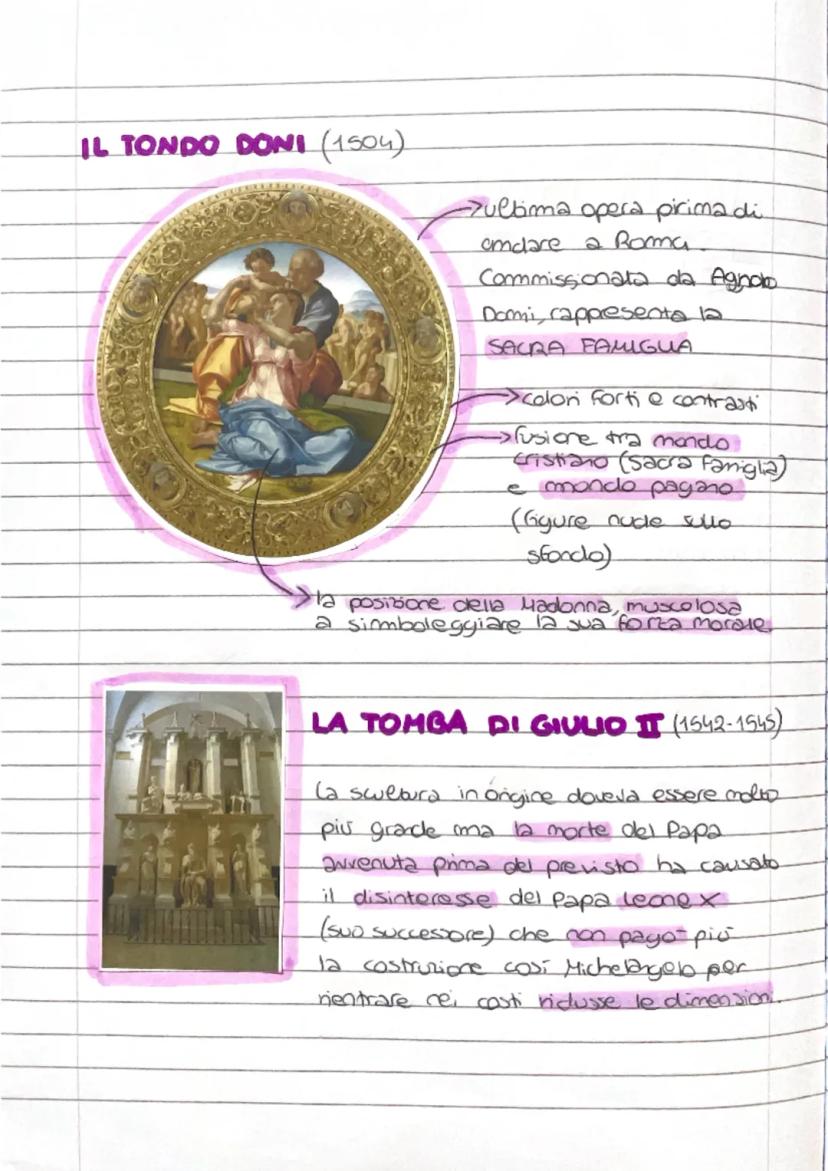 IL TONDO DONI (1504)
ultima opera prima di
andare a Roma.
Commissionata da Agnolo
Doni, rappresenta la
SACRA FAMIGLIA
colori forti e contrasti
fusione tra mondo
cristiano (sacra famiglia)
e mondo pagano
(figure nude sullo
sfondo)
la posizione della Madonna, muscolosa
a simboleggiare la sua forza morale
LA TOMBA DI GIULIO II (1542-1545)
La scultura in origine doveva essere molto
più grade ma la morte del Papa
avvenuta prima del previsto ha causato
il disinteresse del Papa Leone X
(suo successore) che non pagò più
la costruzione così Michelangelo per
rientrare nei costi ridusse le dimensioni.